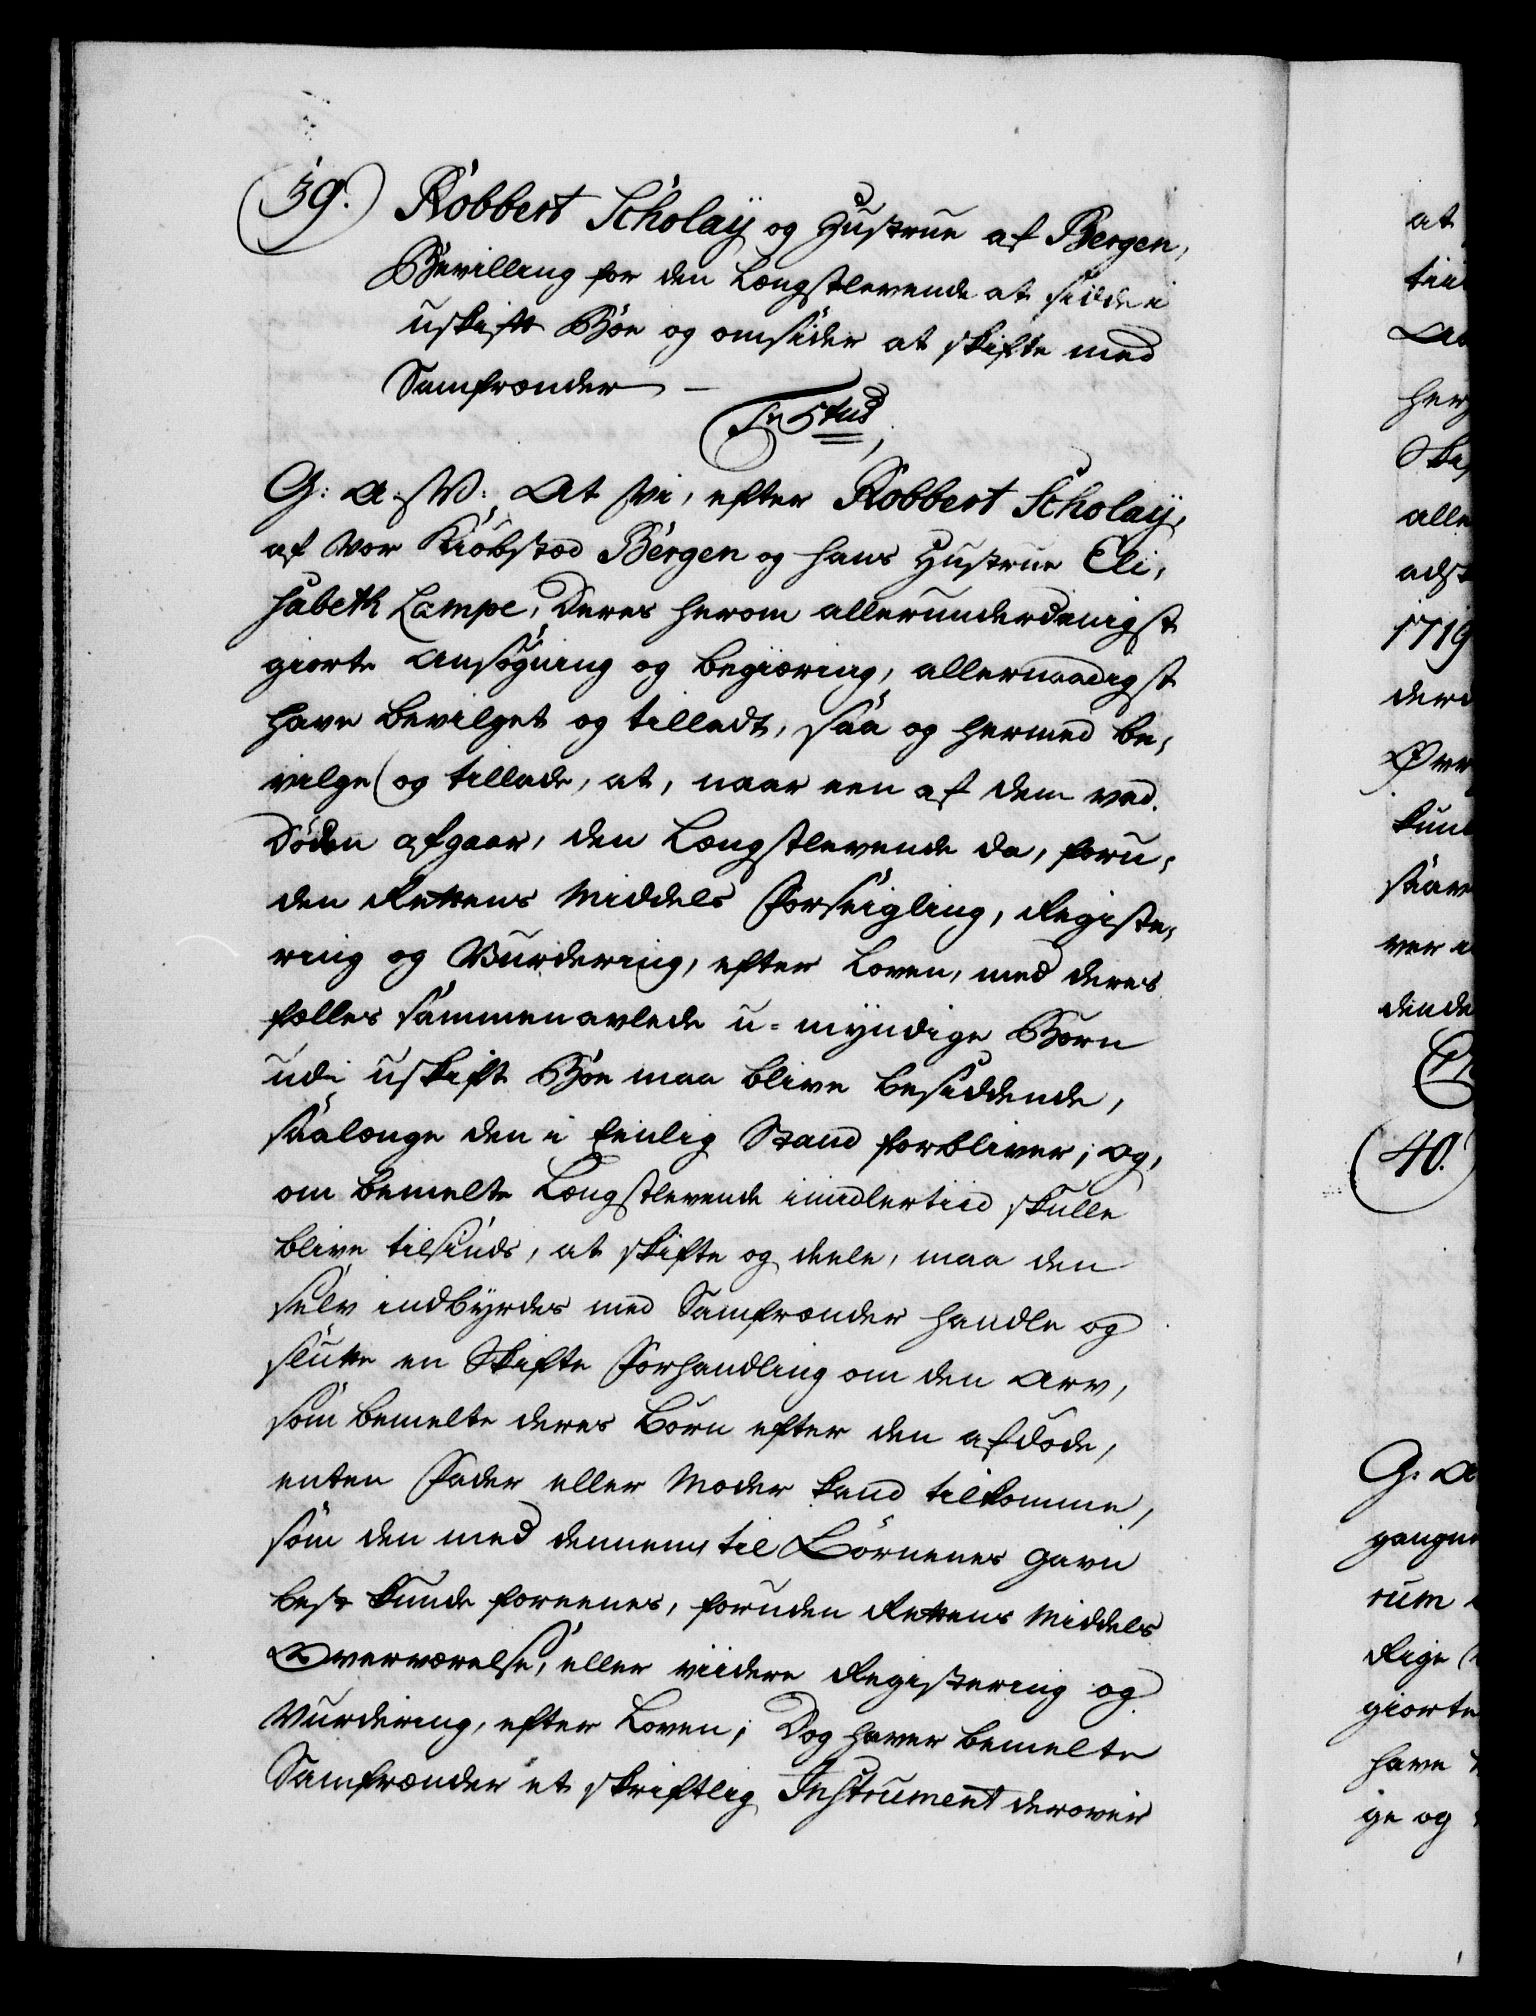 39. Robbert Scholaÿ og Hustrue af Bergen,
Bevilling for den Længstlevende at sidde i
uskift Boe og omsider at skifte med
Samfrænder –
G: A: W: At Vi, efter Robbert Scholaÿ,
af Vor Kiöbstæd Bergen og hans Hustrue Eli,
sabeth Lampe, Deres herom allerunderdanigst
giorte Ansøgning og begiæring, allernaadigst
have bevilget og tilladt, saa og hermed be,
vilge og tillade, at, naar een af dem ved
Döden afgaar, den Længstlevende da, foru,
den Rettens Middels Forseigling, Registe,
ring og Vurdering, efter Loven, med deres
fælles sammenavlede u-mÿndige Børn
udi uskift Boe maa blive besiddende,
saalænge den i Eenlig Stand forbliver; og,
om bemelte Længstlevende imidlertiid skulle
blive tilsinds, at skifte og deele, maa den
selv indbÿrdes med Samfrænder handle og
slutte en Skifte Forhandling om den Arv,
som bemelte deres Børn efter den afdøde,
enten Fader eller Moder kand tilkomme,
som den med dennem til Börnenes Gavn
best kunde foreenes, foruden Rettens Middels
Overværelse, eller viidere Registering og
Vurdering, efter Loven; Dog haver bemelte
Samfrænder et skriftlig Instrument derover
at
tii
her
Ski
alle
1719
der
kun
ver
dende
40.
G: A
gangne
rum
Rige
giorte
have
ge og